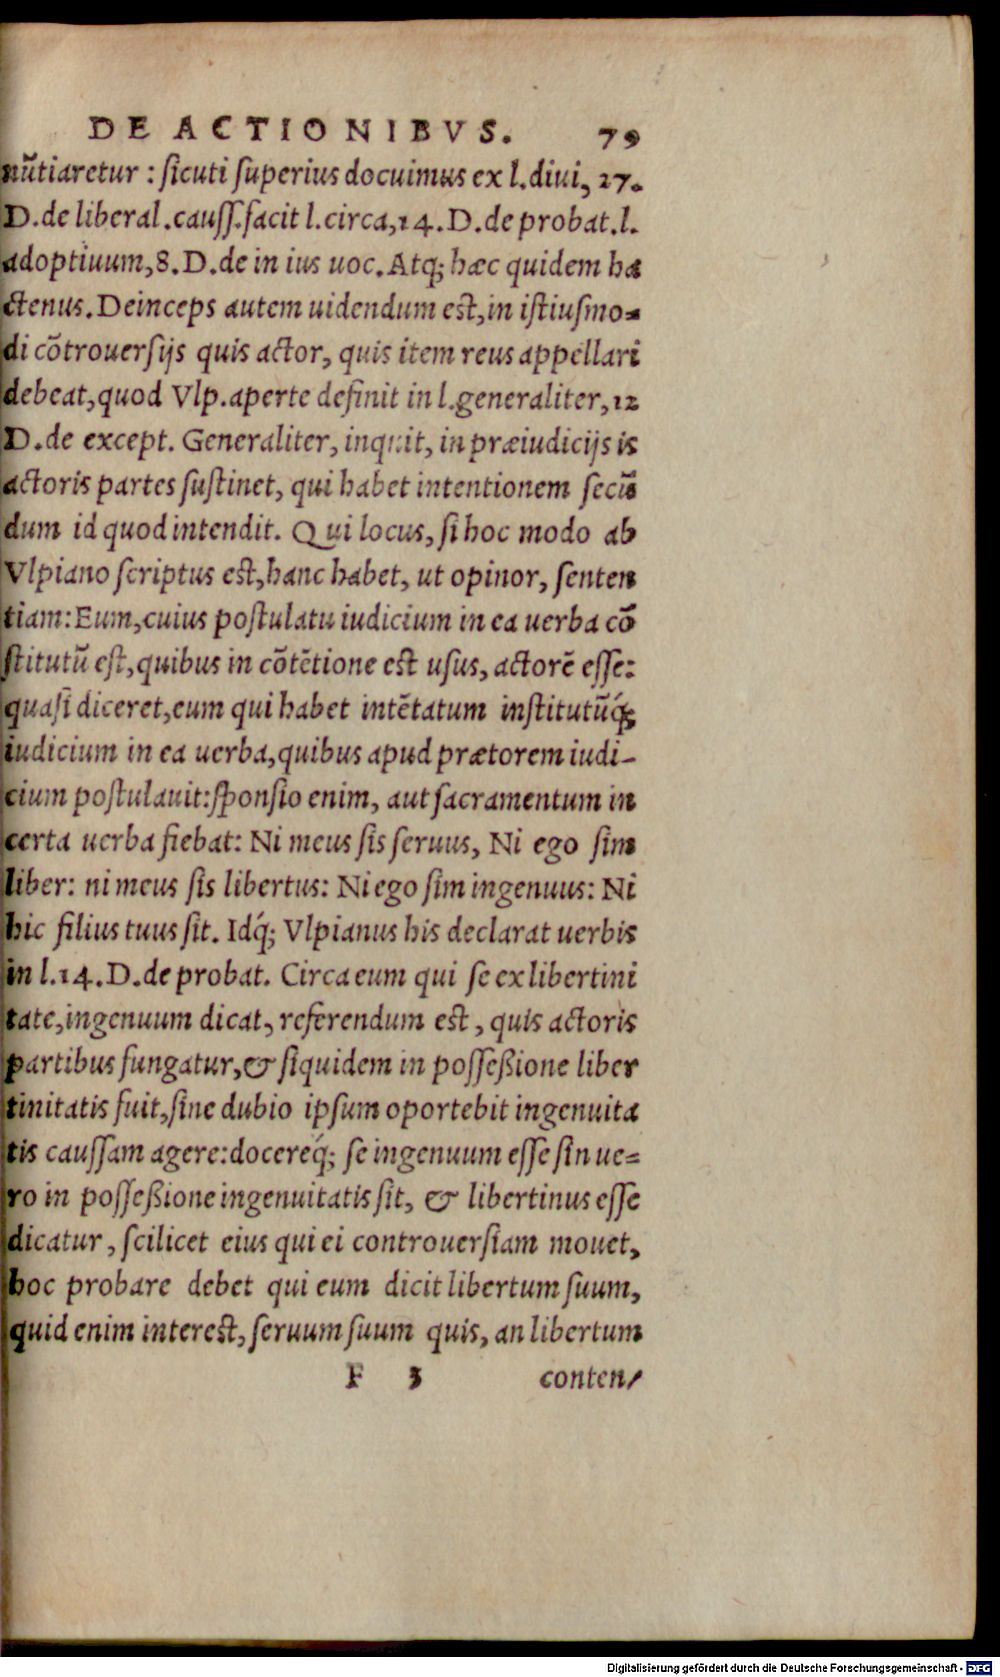 DE ACTIONIBVS. 79
nũtiaretur : sicuti superius docuimus ex l. diui, 27.
D. de liberal. cauſſ. facit l. circa, 14. D. de probat. l.
adoptiuum, 8. D. de in ius uoc. Atq; hæc quidem ha
ctenus. Deinceps autem uidendum est, in istiusmo-
di cõtrouersijs quis actor, quis item reus appellari
debeat, quod Vlp. aperte definit in l. generaliter, 12
D. de except. Generaliter, inquit, in præiudicijs is
actoris partes sustinet, qui habet intentionem secũ
dum id quod intendit. Qui locus, si hoc modo ab
Vlpiano scriptus est, hanc habet, ut opinor, senten
tiam: Eum, cuius postulatu iudicium in ea uerba cõ
stitutũ est, quibus in cõtẽtione est usus, actorẽ esse:
quasi diceret, eum qui habet intẽtatum institutũq́;
iudicium in ea uerba, quibus apud prætorem iudi-
cium postulauit: sponsio enim, aut sacramentum in
certa uerba fiebat: Ni meus sis seruus, Ni ego sim
liber: ni meus sis libertus: Ni ego sim ingenuus: Ni
hic filius tuus sit. Idq́; Vlpianus his declarat uerbis
in l. 14. D. de probat. Circa eum qui se ex libertini
tate, ingenuum dicat, referendum est, quis actoris
partibus fungatur, & siquidem in posseßione liber
tinitatis fuit, sine dubio ipsum oportebit ingenuita
tis caussam agere: docereq́; se ingenuum esse sin ue-
ro in posseßione ingenuitatis sit, & libertinus esse
dicatur, scilicet eius qui ei controuersiam mouet,
hoc probare debet qui eum dicit libertum suum,
quid enim interest, seruum suum quis, an libertum
F 3 conten-
Digitalisierung gefördert durch die Deutsche Forschungsgemeinschaft - DFG